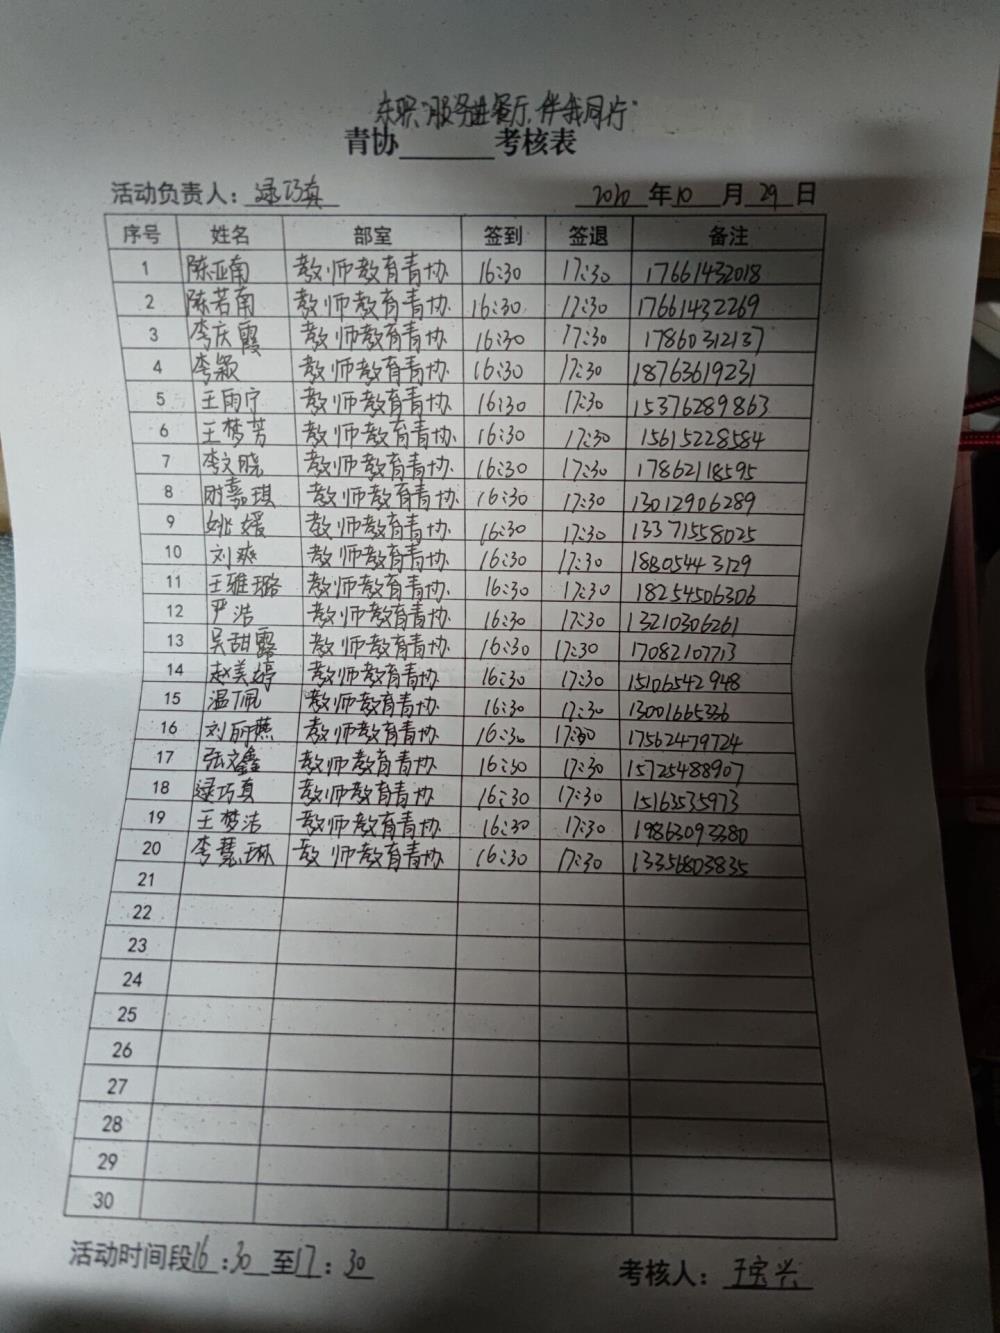 东职"服务进餐厅,伴我同行"
青协______考核表
活动负责人: 逯巧真 2020 年 10 月 29 日
序号 姓名 部室 签到 签退 备注
1 陈亚南 教师教育青协 16:30 17:30 17661432018
2 陈若南 教师教育青协 16:30 17:30 17661432269
3 李庆霞 教师教育青协 16:30 17:30 17860312137
4 李颖 教师教育青协 16:30 17:30 18763619231
5 王雨宁 教师教育青协 16:30 17:30 15376289863
6 王梦芳 教师教育青协 16:30 17:30 15615228584
7 李文晓 教师教育青协 16:30 17:30 17862118595
8 尉嘉琪 教师教育青协 16:30 17:30 13012906289
9 姚媛 教师教育青协 16:30 17:30 13371558025
10 刘爽 教师教育青协 16:30 17:30 18805443129
11 王雅璐 教师教育青协 16:30 17:30 18254506306
12 严浩 教师教育青协 16:30 17:30 13210306261
13 吴甜露 教师教育青协 16:30 17:30 17082107713
14 赵美婷 教师教育青协 16:30 17:30 15106542948
15 温佩 教师教育青协 16:30 17:30 13001665336
16 刘丽燕 教师教育青协 16:30 17:30 17562479724
17 张文鑫 教师教育青协 16:30 17:30 15725488907
18 逯巧真 教师教育青协 16:30 17:30 15163535973
19 王梦洁 教师教育青协 16:30 17:30 19863093380
20 李慧琳 教师教育青协 16:30 17:30 13356803835
21
22
23
24
25
26
27
28
29
30
活动时间段16:30至17:30 考核人: 王宝兴